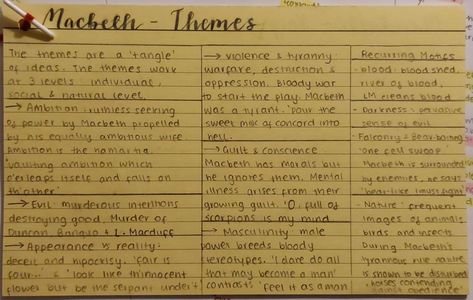 Macbeth - Themes
The themes are a 'tangle'
of ideas. The themes work
at 3 levels: individual,
social & natural level.
→ Ambition ruthless seeking
of power by Macbeth propelled
by his equally ambitious wife
Ambition is the hamartia.
'vaulting ambition which
o'erleaps itself and falls on
th'other'
→ Evil murderous intentions
destroying good. Murder of
Duncan, Banquo & L. Macduff
→ Appearance vs reality:
deceit and hipocrisy. 'fair is
four...' & 'look like th'innocent
flower but be the serpant under't
→ violence & tyranny
warfare, destruction &
oppression. Bloody war
to start the play. Macbeth
was a tyrant. 'pour the
sweet milk of concord into
hell.
→ Guilt & conscience
Macbeth has morals but
he ignores them. Mental
illness arises from their
growing guilt. 'O, full of
scorpions is my mind
→ Masculinity male
power breeds bloody
stereotypes. 'I dare do all
that may become a man'
contrasts 'feel it as a man
Recurring Motifs
- Blood: blood shed,
river of blood,
LM means blood
- Darkness: pervasive
sense of evil
- Falconry & Bear-baiting:
'one fell swoop'
Macbeth is surrounded
by enemies, he says
'bear-like I must fight'
- Nature: frequent
images of animals
birds and insects
During Macbeth's
tyrannous rule nature
is shown to be disturbed
'horses contending
against obedience'